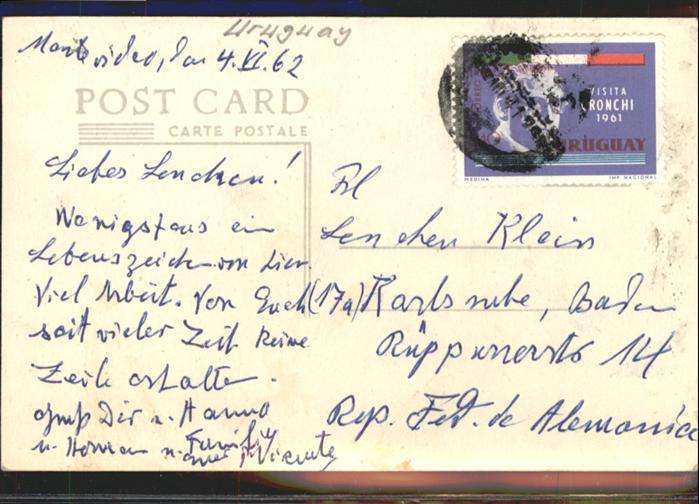 Uruguay
Montevideo, den 4.VI.62
POST CARD
CARTE POSTALE
VISITA
GRONCHI
1961
URUGUAY
MEDINA
IMP. NACIONAL
Liebes Lenchen!
Wenigstens ein
Lebenszeichen von hier.
Viel Arbeit. Von Euch
seit vieler Zeit keine
Zeile erhalten.
Gruß Dir u. Hanno
u. Herman u. Familie
Vicente
Frl
Lenchen Klein
(17a) Karlsruhe, Baden
Rüppurrerstr 14
Rep. Fed. de Alemania